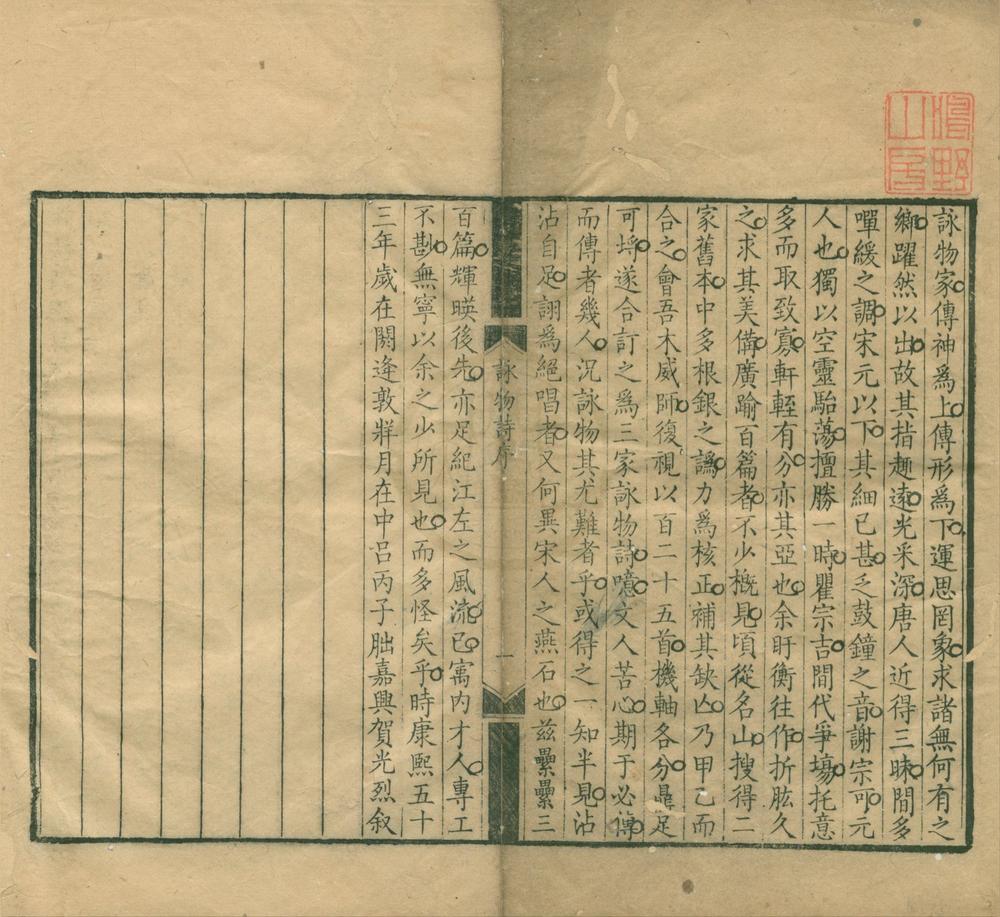 詠物家傳神爲上傳形爲下運思罔象求諸無何有之
鄉躍然以出故其指趣遠光采深唐人近得三昧間多
嘽緩之調宋元以下其細已甚乏鼓鐘之音謝宗可元
人也獨以空靈駘蕩擅勝一時瞿宗吉間代爭塲托意
多而取致寡軒輊有分亦其亞也余盱衡往作折肱久
之求其美備廣踰百篇者不少槪見頃從名山搜得二
家舊本中多根銀之譌力爲核正補其缺亾乃甲乙而
合之會吾木威師復視以百二十五首機軸各分鼎足
可埒遂合訂之爲三家詠物詩噫文人苦心期于必傳
而傳者幾人况詠物其尤難者乎或得之一知半見沾
沾自足詡爲絕唱者又何異宋人之燕石也兹纍纍三
詠物詩序
一
百篇輝暎後先亦足紀江左之風流已寓内才人專工
不尠無寧以余之少所見也而多怪矣乎時康熙五十
三年歲在閼逢敦牂月在中呂丙子朏嘉興賀光烈叙
山房